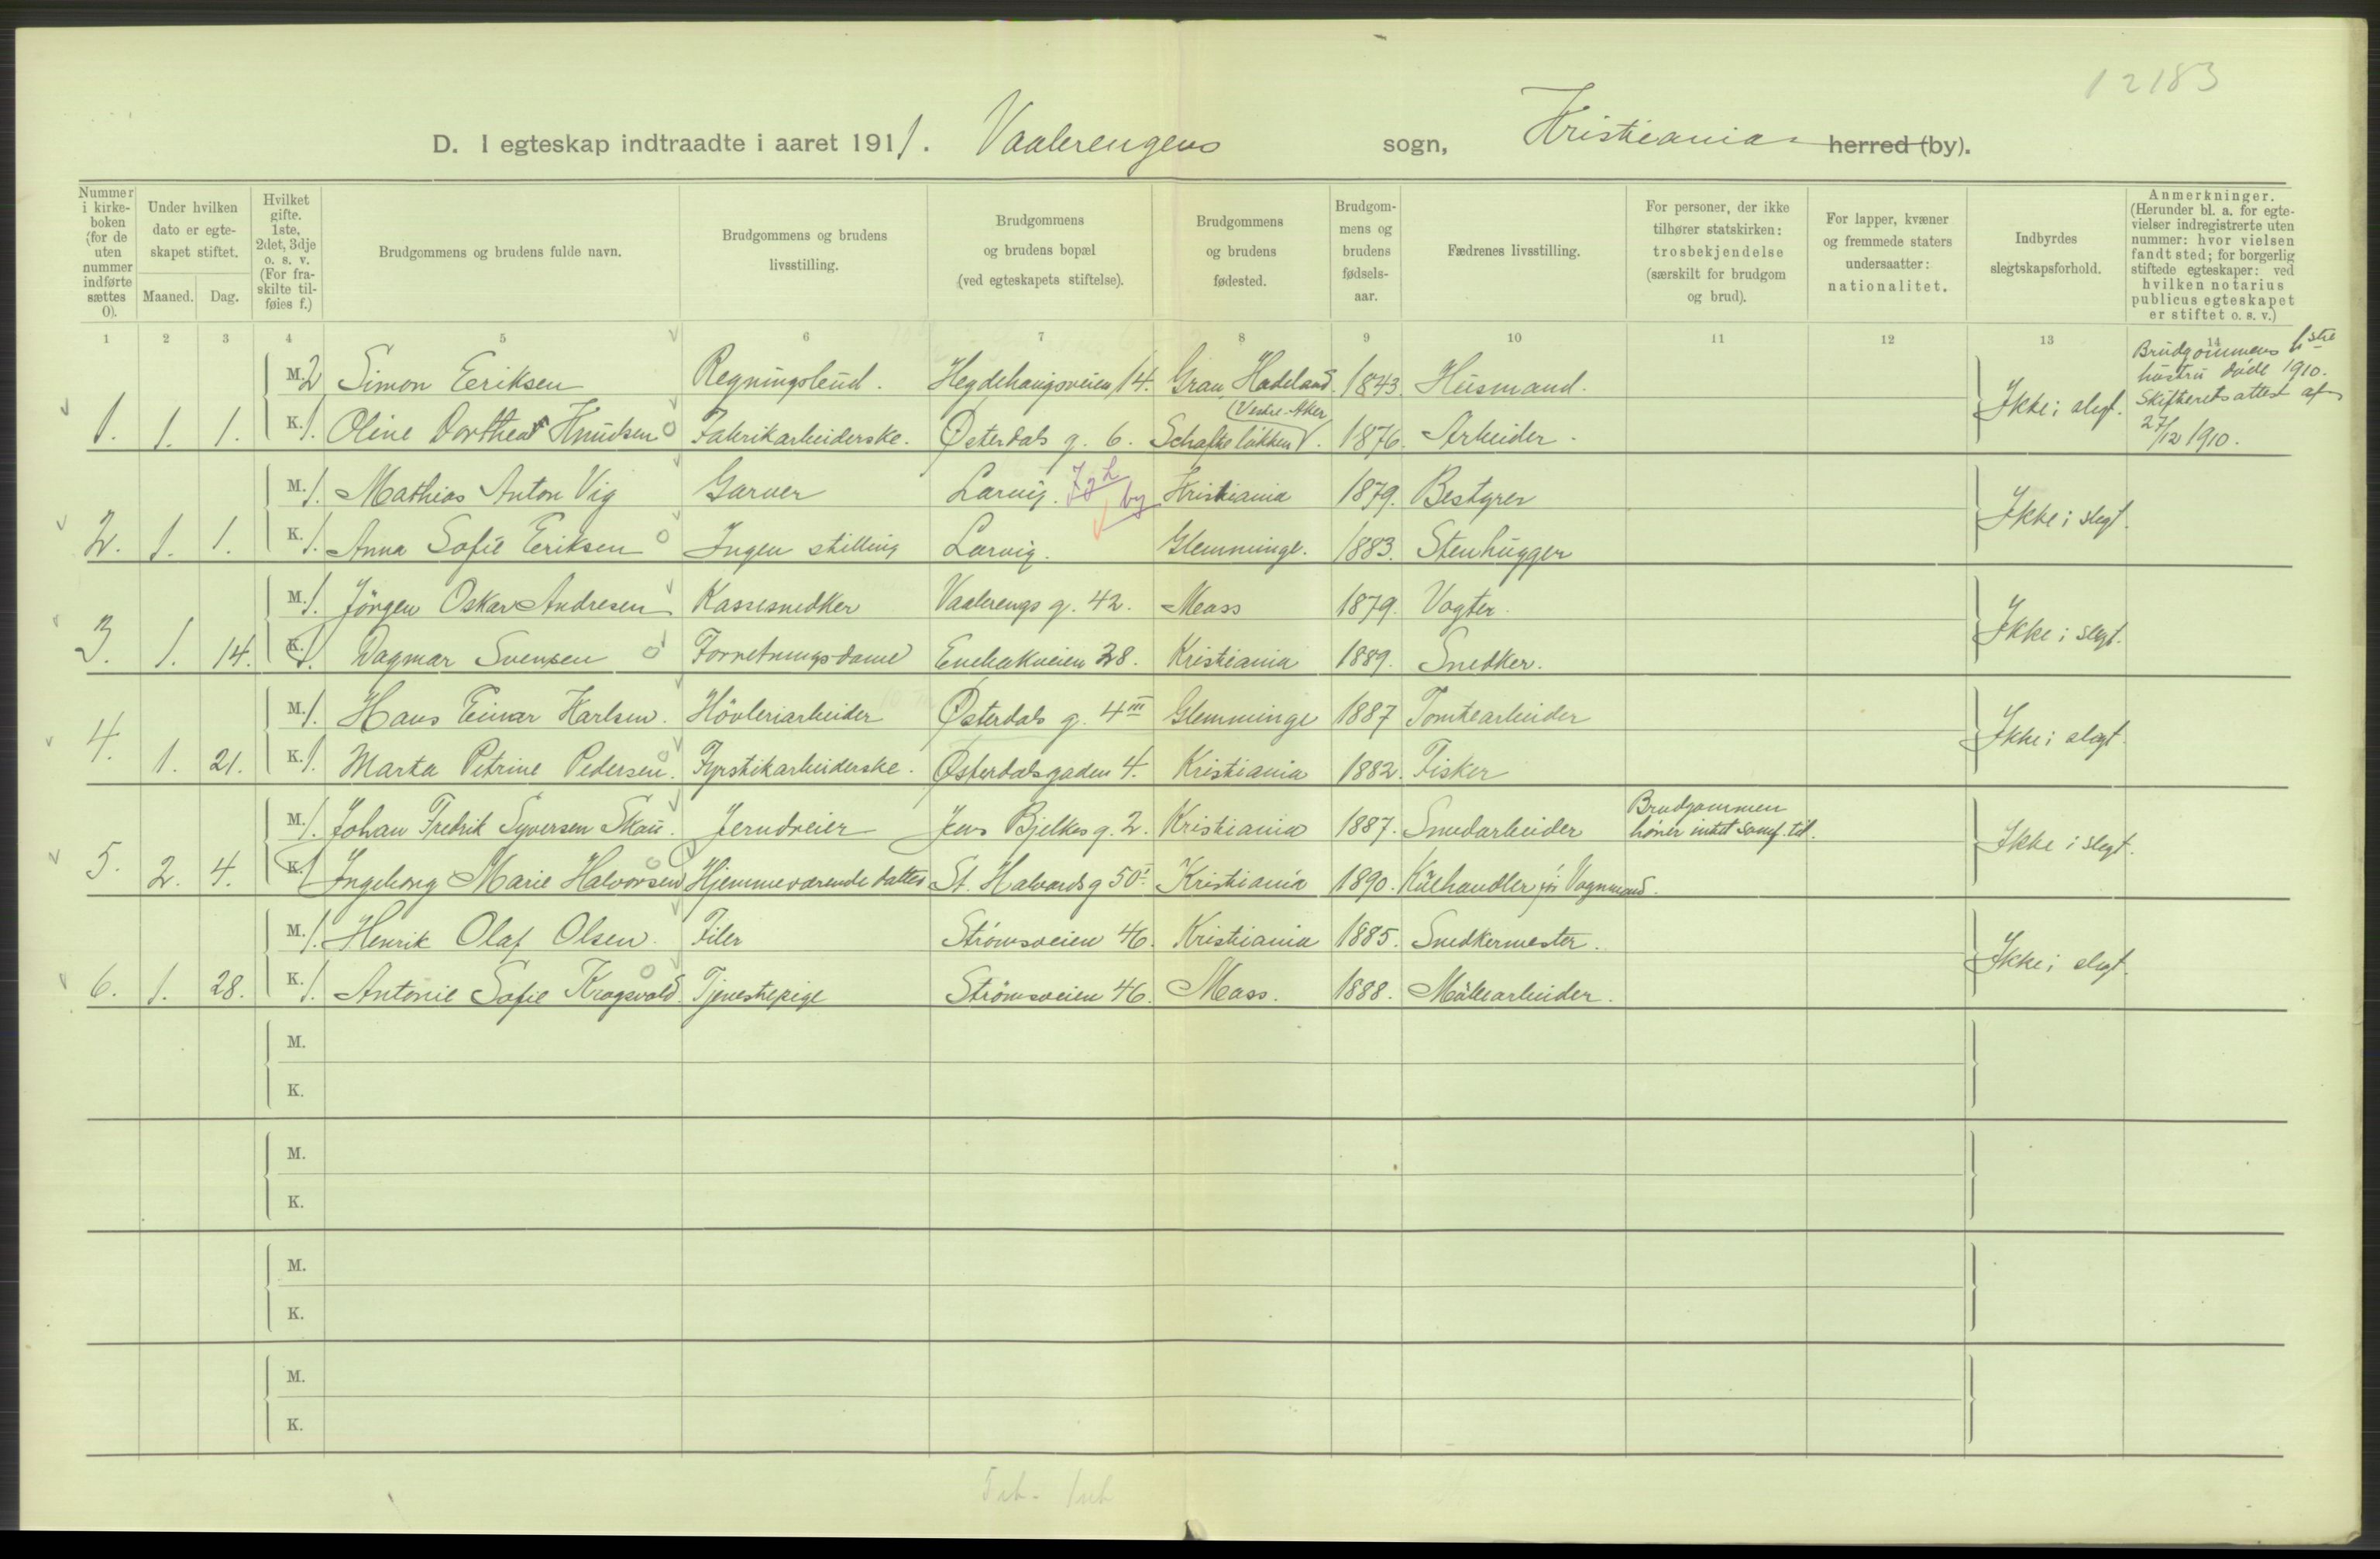 12183
D. I egteskap indtraadte i aaret 1911. Vaalerengens sogn, Kristiania herred (by).
Nummer i kirkeboken (for de uten nummer indførte sættes 0).
Under hvilken dato er egteskapet stiftet.
Maaned. Dag.
Hvilket gifte. 1ste, 2det, 3dje o. s. v. (For fraskilte tilføies f.)
Brudgommens og brudens fulde navn.
Brudgommens og brudens livsstilling.
Brudgommens og brudens bopæl (ved egteskapets stiftelse).
Brudgommens og brudens fødested.
Brudgommens og brudens fødselsaar.
Fædrenes livsstilling.
For personer, der ikke tilhører statskirken: trosbekjendelse (særskilt for brudgom og brud).
For lapper, kvæner og fremmede staters undersaatter: nationalitet.
Indbyrdes slegtskapsforhold.
Anmerkninger. (Herunder bl. a. for egtevielser indregistrerte uten nummer: hvor vielsen fandt sted; for borgerlig stiftede egteskaper: ved hvilken notarius publicus egteskapet er stiftet o. s. v.)
1 2 3 4 5 6 7 8 9 10 11 12 13 14
M. 2 Simon Eriksen Regningsbud. Hegdehaugsveien 14. Gran, Hadeland. 1843. Husmand.
Brudgommens 1ste hustru döde 1910. Skifteretsattest af 27/12 1910.
1. 1. 1. K. 1. Oline Dorthea Knudsen Fabrikarbeiderske. Østerdals g. 6. Schafteløkken V. (Vestre Aker) 1876. Arbeider. Ikke i slegt.
M. 1. Mathias Anton Vig Garver Larvig. by Kristiania 1879. Bestyrer
2. 1. 1. K. 1. Anna Sofie Eriksen Ingen stilling Larvig. Glemminge. 1883. Stenhugger Ikke i slegt.
M. 1. Jörgen Oskar Andresen Kassesnedker Vaalerengs g. 42. Moss 1879. Vogter.
3. 1. 14. K. 1. Dagmar Svensen Forretningsdame Enebakveien 28. Kristiania 1889. Snedker. Ikke i slegt.
M. 1. Hans Einar Karlsen. Hövleriarbeider Østerdals g. 4 III Glemminge 1887 Tomtearbeider
4. 1. 21. K. 1. Marta Petrine Pedersen. Fyrstikarbeiderske. Østerdalsgaden 4. Kristiania 1882. Fisker Ikke i slegt.
M. 1. Johan Fredrik Syversen Skau. Jerndreier Jens Bjelkes g. 2. Kristiania 1887. Smedarbeider Brudgommen hörer intet samf. til.
5. 2. 4. K. 1. Ingeborg Marie Halvorsen Hjemmeværende datter St. Halvards g 50 I Kristiania 1890. Kulhandler før Vognmand. Ikke i slegt.
M. 1. Henrik Olaf Olsen. Filer Strömsveien 46. Kristiania 1885. Snedkermester.
6. 1. 28. K. 1. Antonie Sofie Krogsvold. Tjenestepige Strömsveien 46. Moss. 1888. Möllearbeider. Ikke i slegt.
M.
K.
M.
K.
M.
K.
M.
K.